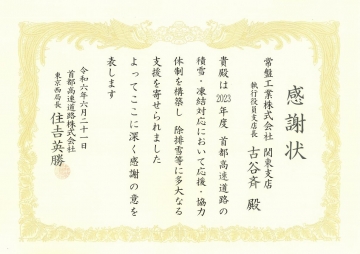 感謝状
常盤工業株式会社 関東支店
執行役員支店長 古谷斉 殿
貴殿は2023年度 首都高速道路の
積雪・凍結対応において応援・協力
体制を構築し 除排雪等に多大なる
支援を寄せられました
よってここに深く感謝の意を
表します
令和六年六月二十一日
首都高速道路株式会社
東京西局長 住吉英勝